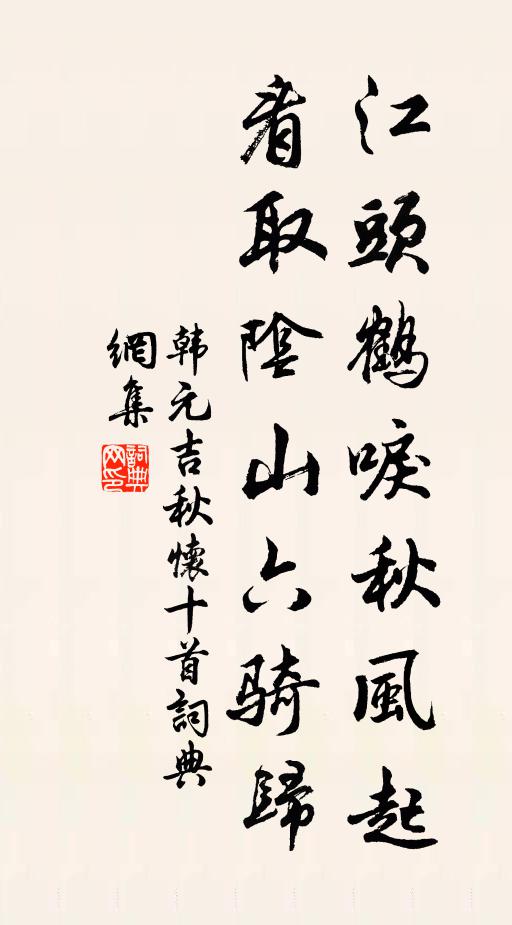 江頭鶴唳秋風起
看取陰山六騎歸
韩元吉秋懷十首詞典
網集
詞典網印